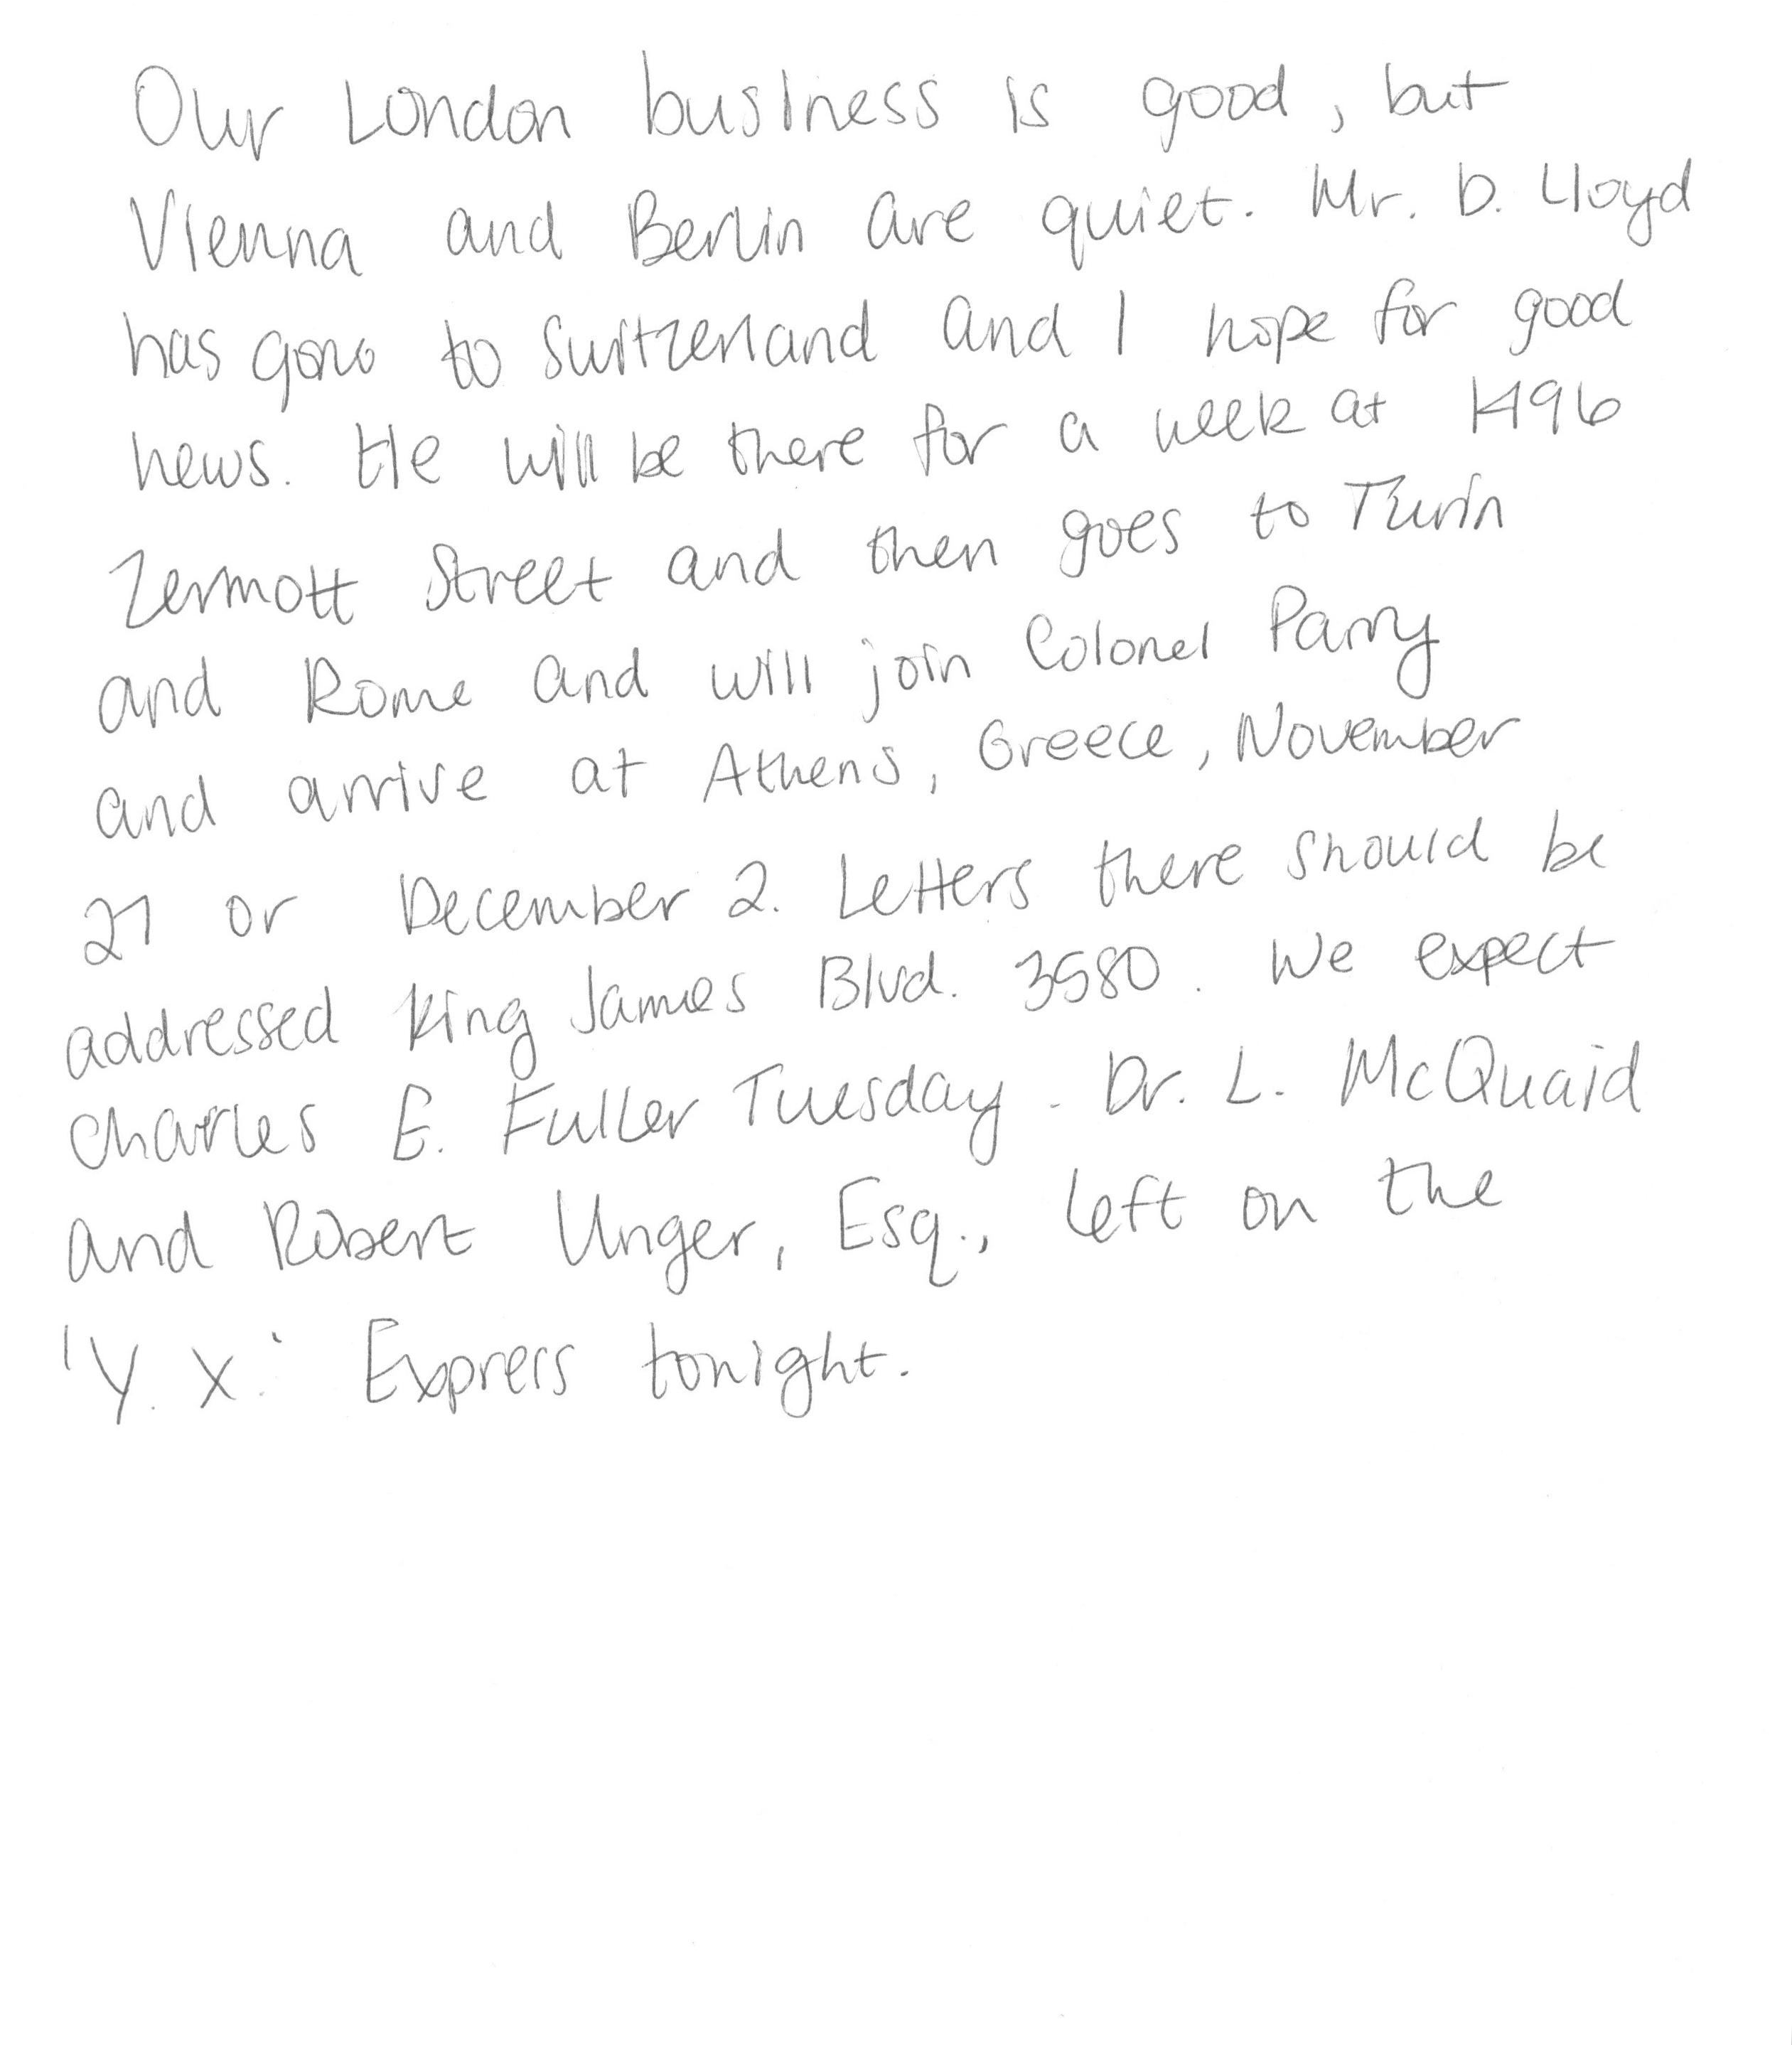 Our London business is good, but
Vienna and Berlin are quiet. Mr. D. Lloyd
has gone to Switzerland and I hope for good
news. He will be there for a week at 1496
Zermott Street and then goes to Turin
and Rome and will join Colonel Parry
and arrive at Athens, Greece, November
27 or December 2. Letters there should be
addressed King James Blvd. 3580. We expect
Charles E. Fuller Tuesday. Dr. L. McQuaid
and Robert Unger, Esq., left on the
'Y. X.' Express tonight.